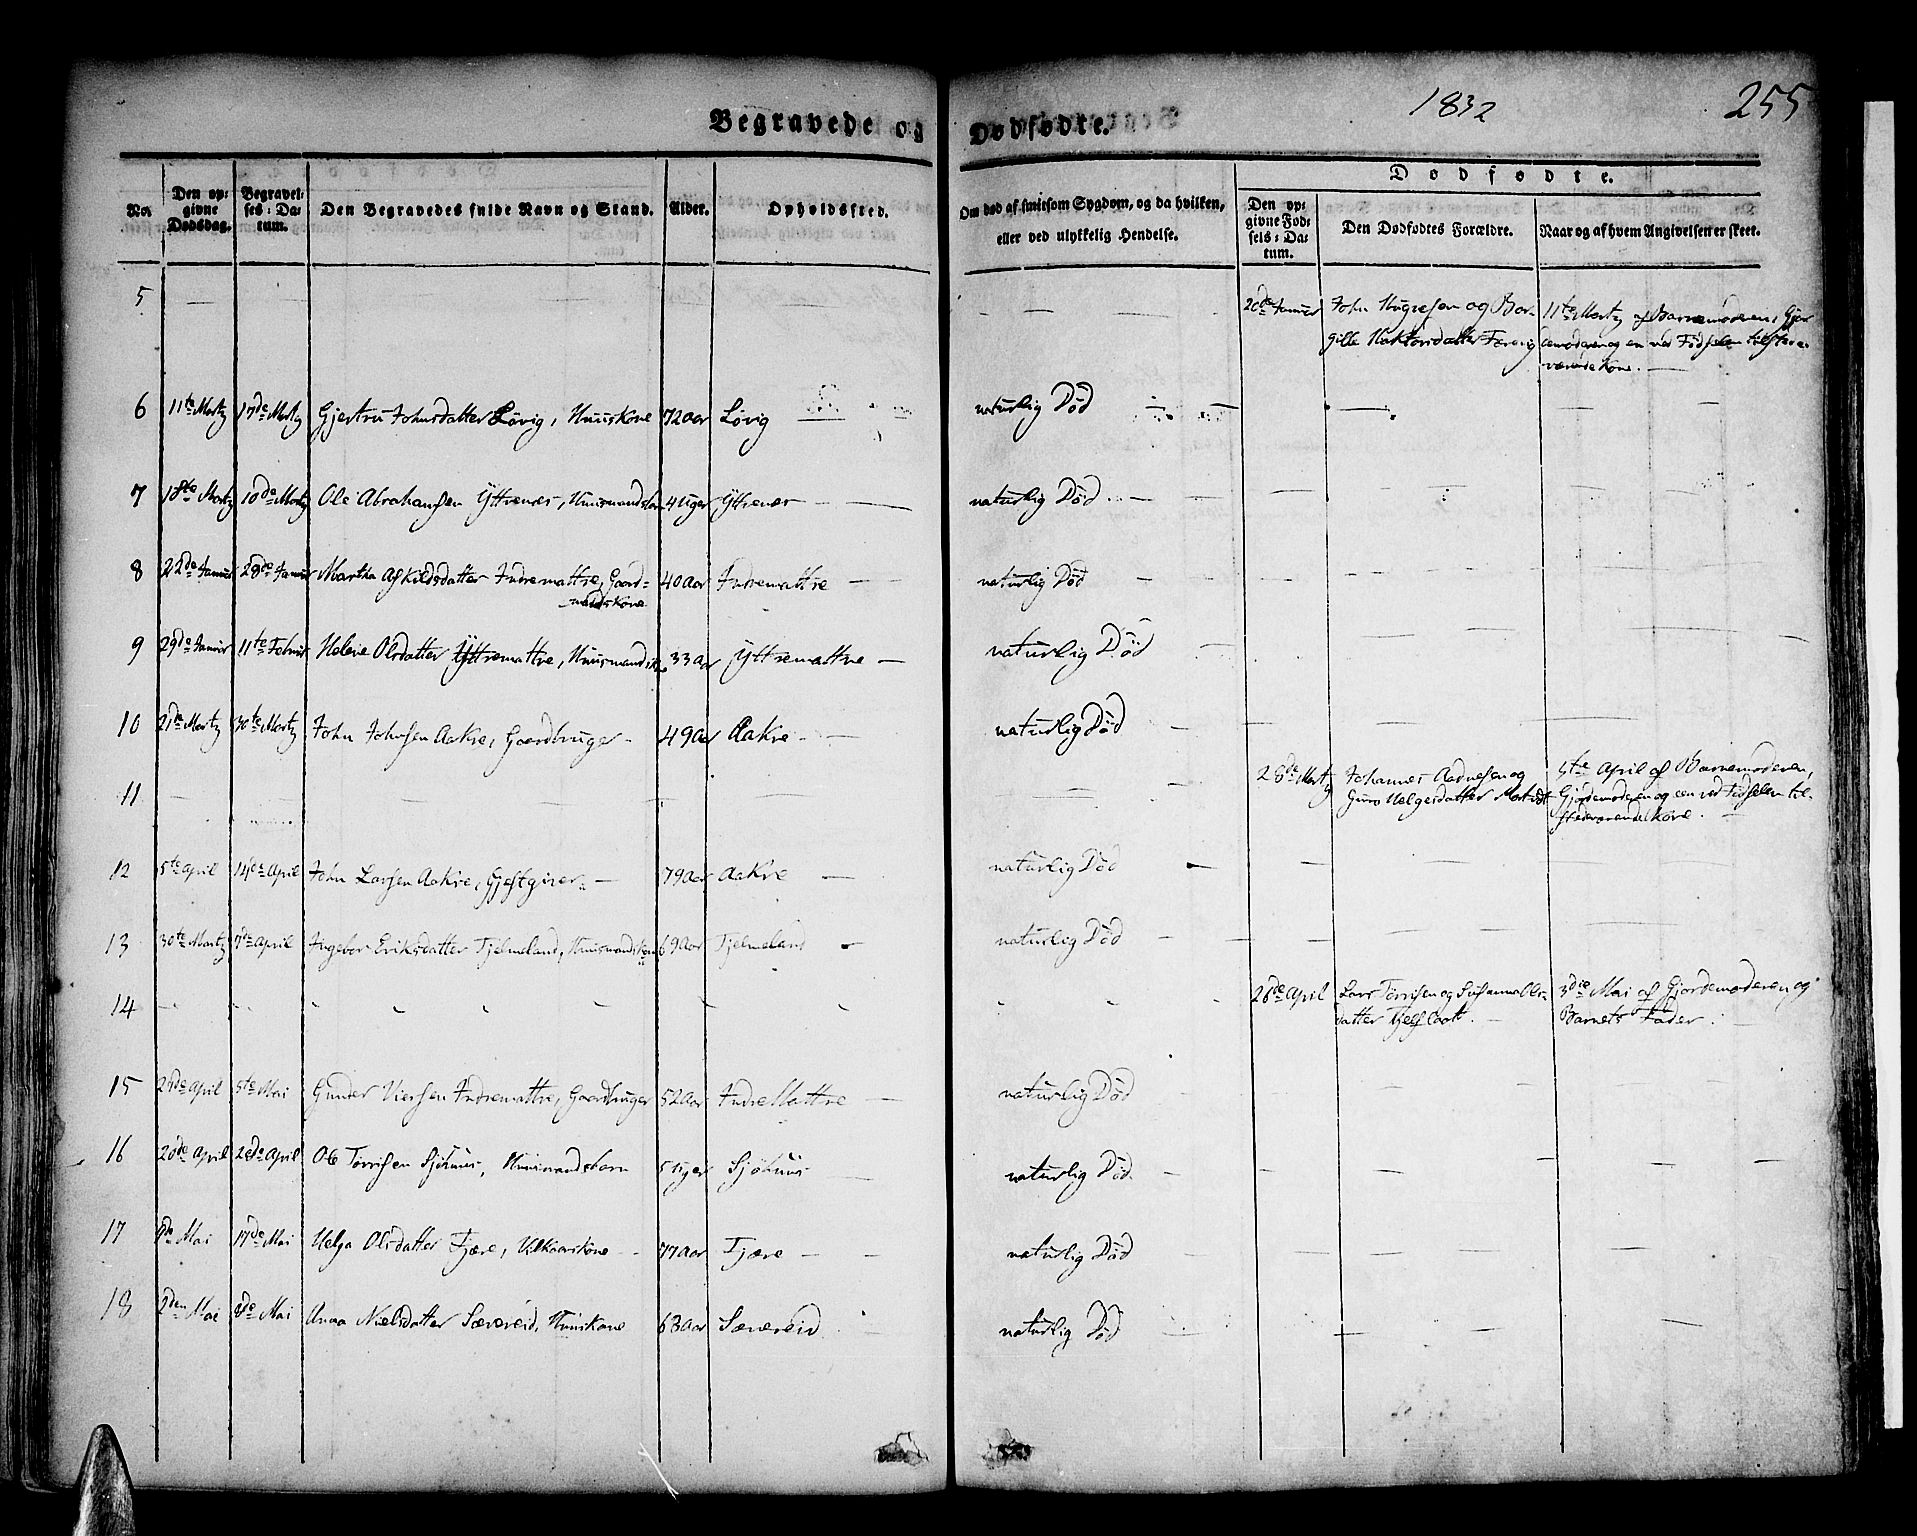 1832
255
Begravede og Dødfødte.
No.
Den opgivne Dødsdag.
Begravelses-Datum.
Den Begravedes fulde Navn og Stand.
Alder.
Opholdssted.
Om død af smitsom Sygdom, og da hvilken,
eller ved ulykkelig Hendelse.
Dødfødte.
Den opgivne Fødsels-Datum.
Den Dødfødtes Forældre.
Naar og af hvem Angivelsen er skeet.
5 — — — — — — 20de Januar John og Bor- 11te Martz af Barnemoderen, Gjor
gille Færvig demoderen og en ved Fødselen tilstede
værende Kone. —
6 11te Martz 17de Martz Gjertru Johnsdatter Løvig, Huuskone 72 Aar Løvig naturlig Død
7 18te Martz 10de Martz Ole Abrahamsen Yttrenæs, Huusmandsbarn 4 Uger Yttrenæs — naturlig Død
8 22de Januar 28de Januar Martha Askildsdatter Indremattre, Gaard- 40 Aar Indremattre — naturlig Død
mandskone
9 29de Januar 11te Februar Helene Olsdatter Yttremattre, 33 Aar Yttremattre — naturlig Død
10 21de Martz 30te Martz John Johnsen Aakre, Gaardbruger — 49 Aar Aakre — naturlig Død
11 — — — — — — 28de Martz Johannes Aadnesen og 5te April af Barnemoderen,
Guro Helgesdatter Gjordemoderen og een ved Fødselen til-
stedeværende Kone. —
12 5te April 14de April John Larsen Aakre, Gjestgiver — 79 Aar Aakre — naturlig Død
13 30te Martz 7de April Ingebor Eriksdatter Tjelmeland, Huusmandskone 69 Aar Tjelmeland — naturlig Død
14 — — — — — — 26de April Lars Tørrisen og 3die Mai af Gjordemoderen og
datter Barnets Fader. —
15 April 5te Mai Gunder Indremattre, Gaardbruger 52 Aar Indre Mattre — naturlig Død
16 20de April April Ole Tørrisen Sjøhuus, Huusmandsbarn 5 Uger Sjøhuus — naturlig Død
17 Mai 17de Mai Helga Olsdatter Fjære, Vilkaarskone — 77 Aar Fjære — naturlig Død
18 2den Mai 8de Mai Anna Nielsdatter Sævereid, Huuskone 63 Aar Sævereid naturlig Død